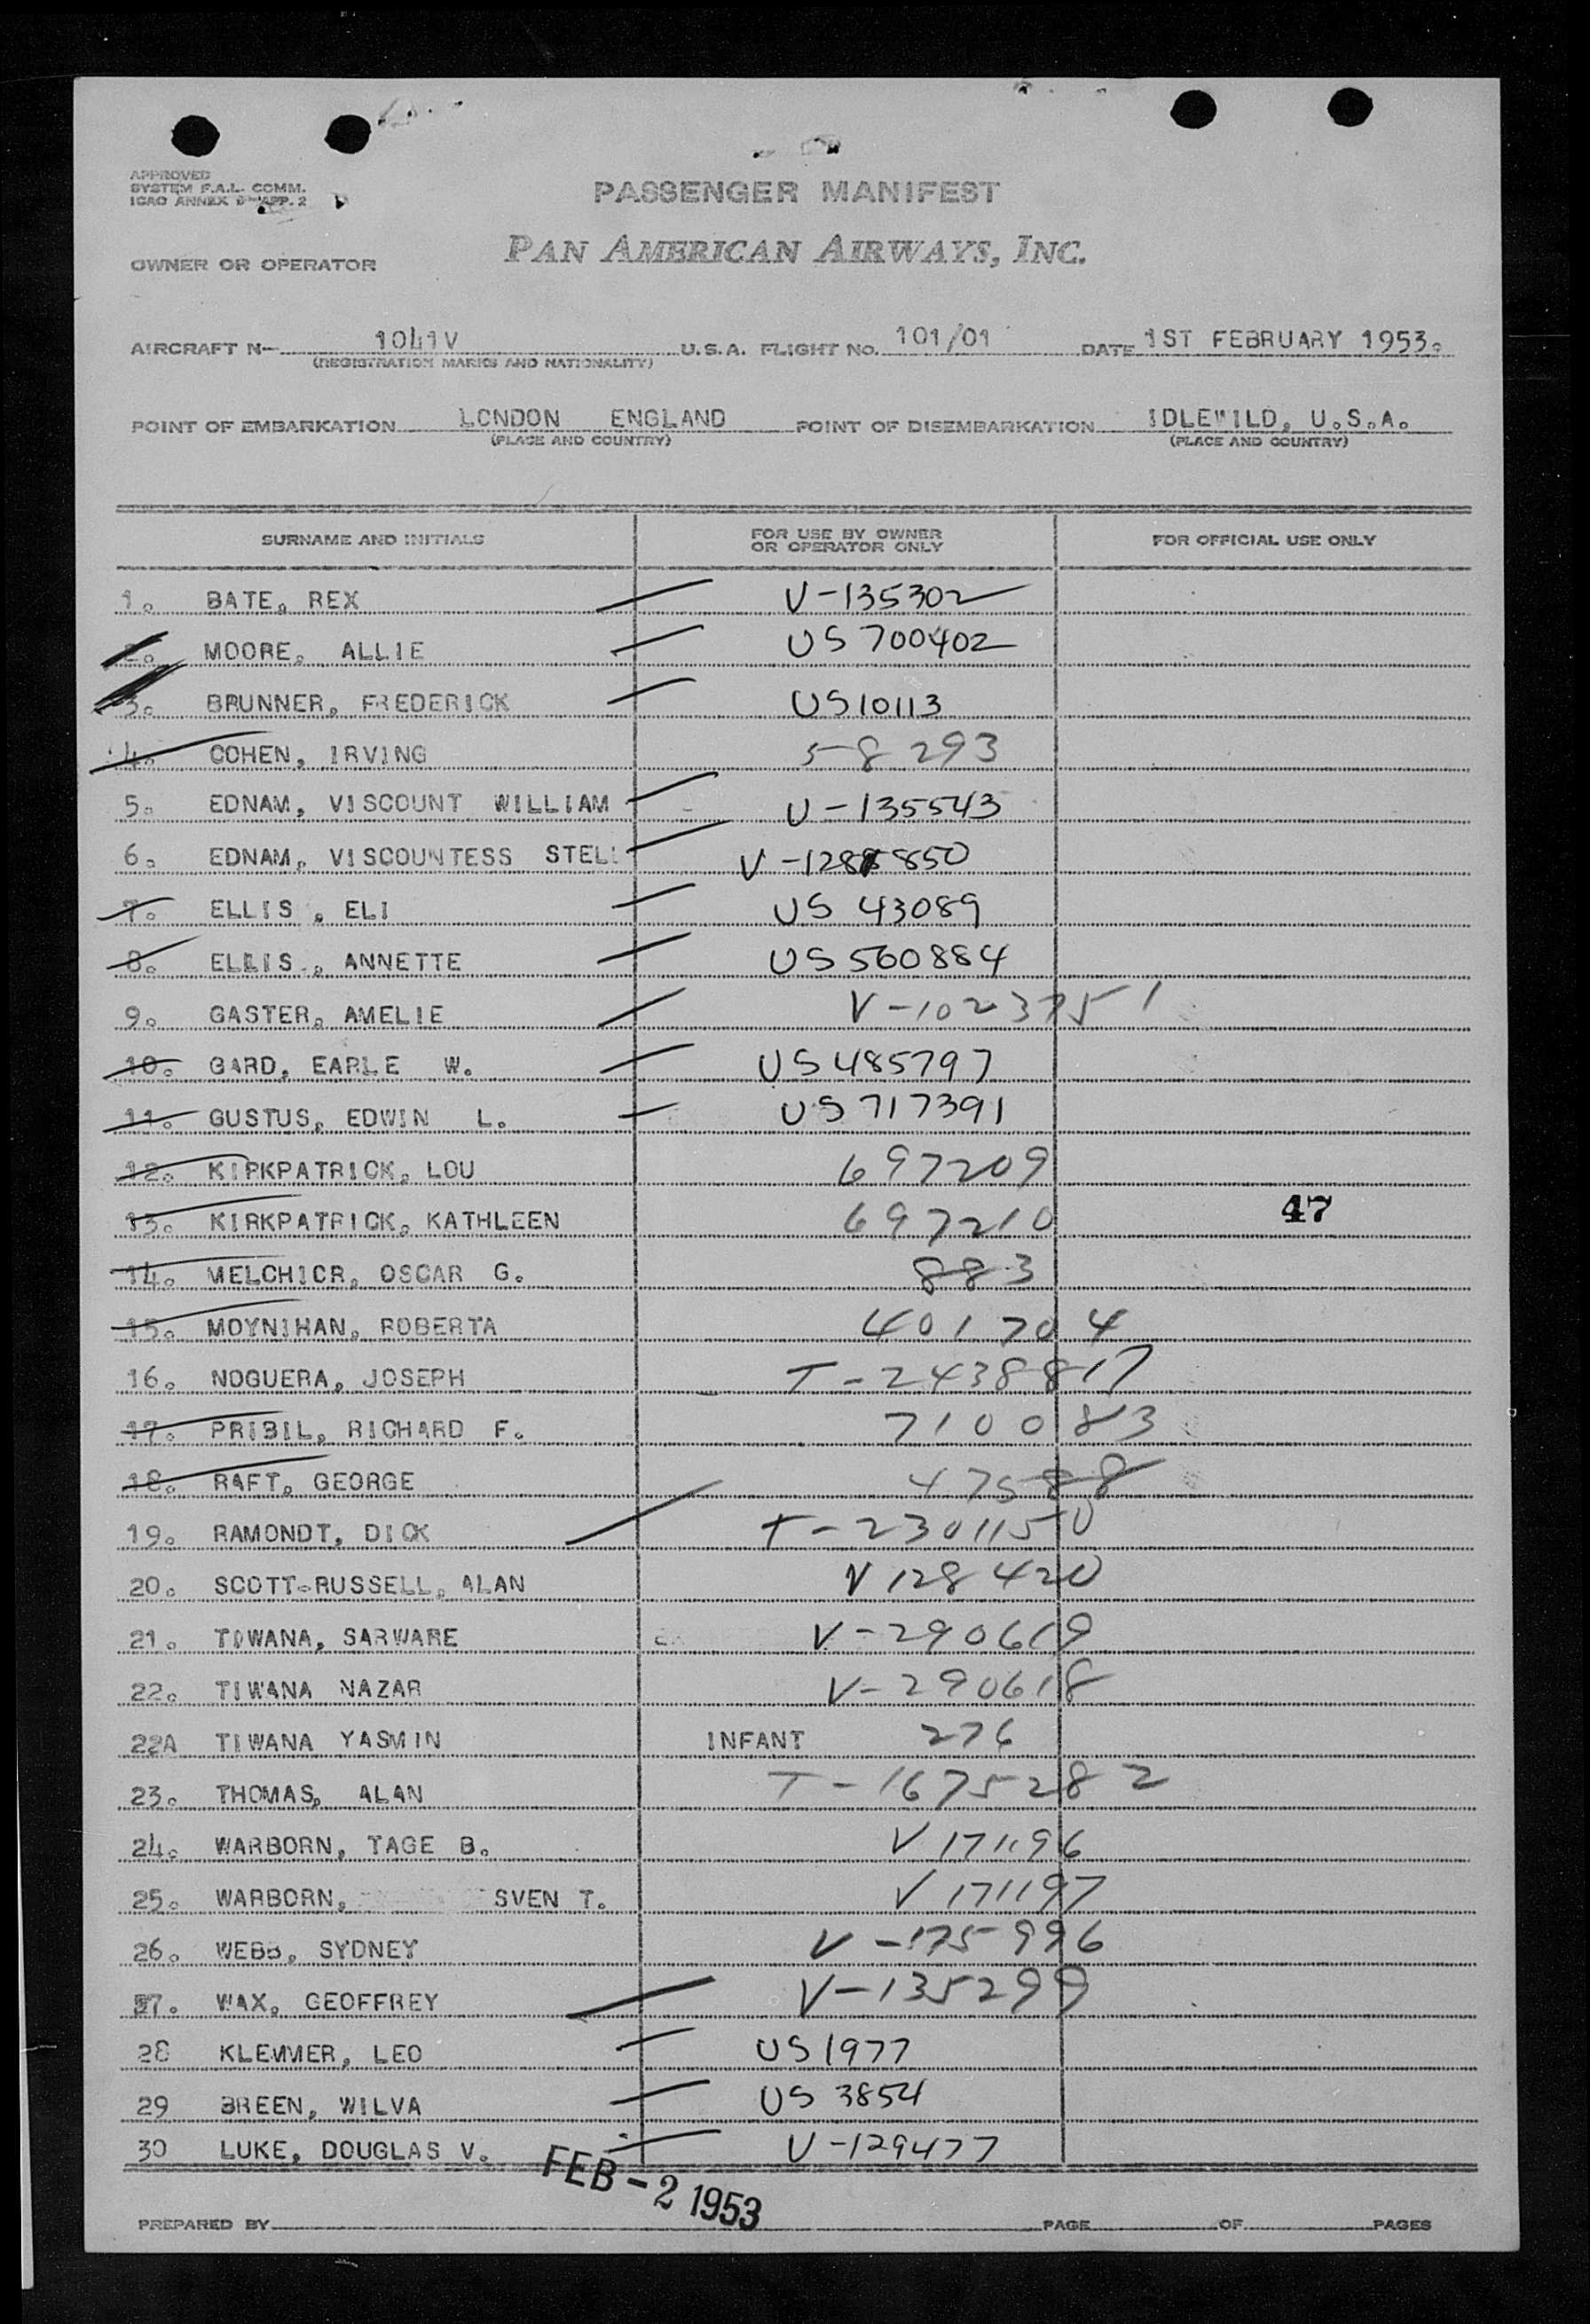 APPROVED
SYSTEM F.A.L. COMM.
ICAO ANNEX 9-APP. 2
PASSENGER MANIFEST
OWNER OR OPERATOR PAN AMERICAN AIRWAYS, INC.
AIRCRAFT N- 1041V U.S.A. FLIGHT NO. 101/01 DATE 1ST FEBRUARY 1953.
(REGISTRATION MARKS AND NATIONALITY)
POINT OF EMBARKATION LONDON ENGLAND POINT OF DISEMBARKATION IDLEWILD, U.S.A.
(PLACE AND COUNTRY) (PLACE AND COUNTRY)
SURNAME AND INITIALS FOR USE BY OWNER OR OPERATOR ONLY FOR OFFICIAL USE ONLY
1. BATE, REX V-135302
2. MOORE, ALLIE US 700402
3. BRUNNER, FREDERICK US10113
4. COHEN, IRVING 58293
5. EDNAM, VISCOUNT WILLIAM V-135543
6. EDNAM, VISCOUNTESS STELL V-128850
7. ELLIS, ELI US 43089
8. ELLIS, ANNETTE US 560884
9. GASTER, AMELIE V-1023751
10. GARD, EARLE W. US 485797
11. GUSTUS, EDWIN L. US 717391
12. KIRKPATRICK, LOU 697209
13. KIRKPATRICK, KATHLEEN 697210 47
14. MELCHIOR, OSCAR G. 883
15. MOYNIHAN, ROBERTA 401704
16. NOGUERA, JOSEPH T-2438817
17. PRIBIL, RICHARD F. 710083
18. RAFT, GEORGE 47588
19. RAMONDT, DICK T-2301150
20. SCOTT-RUSSELL, ALAN V 128420
21. TIWANA, SARWARE V-290619
22. TIWANA NAZAR V-290618
22A TIWANA YASMIN INFANT 276
23. THOMAS, ALAN T-1675282
24. WARBORN, TAGE B. V 171196
25. WARBORN, SVEN T. V 171197
26. WEBB, SYDNEY V-175996
27. WAX, GEOFFREY V-135299
28 KLEMMER, LEO US 1977
29 BREEN, WILVA US 3854
30 LUKE, DOUGLAS V. V-129477
FEB-2 1953
PREPARED BY PAGE OF PAGES